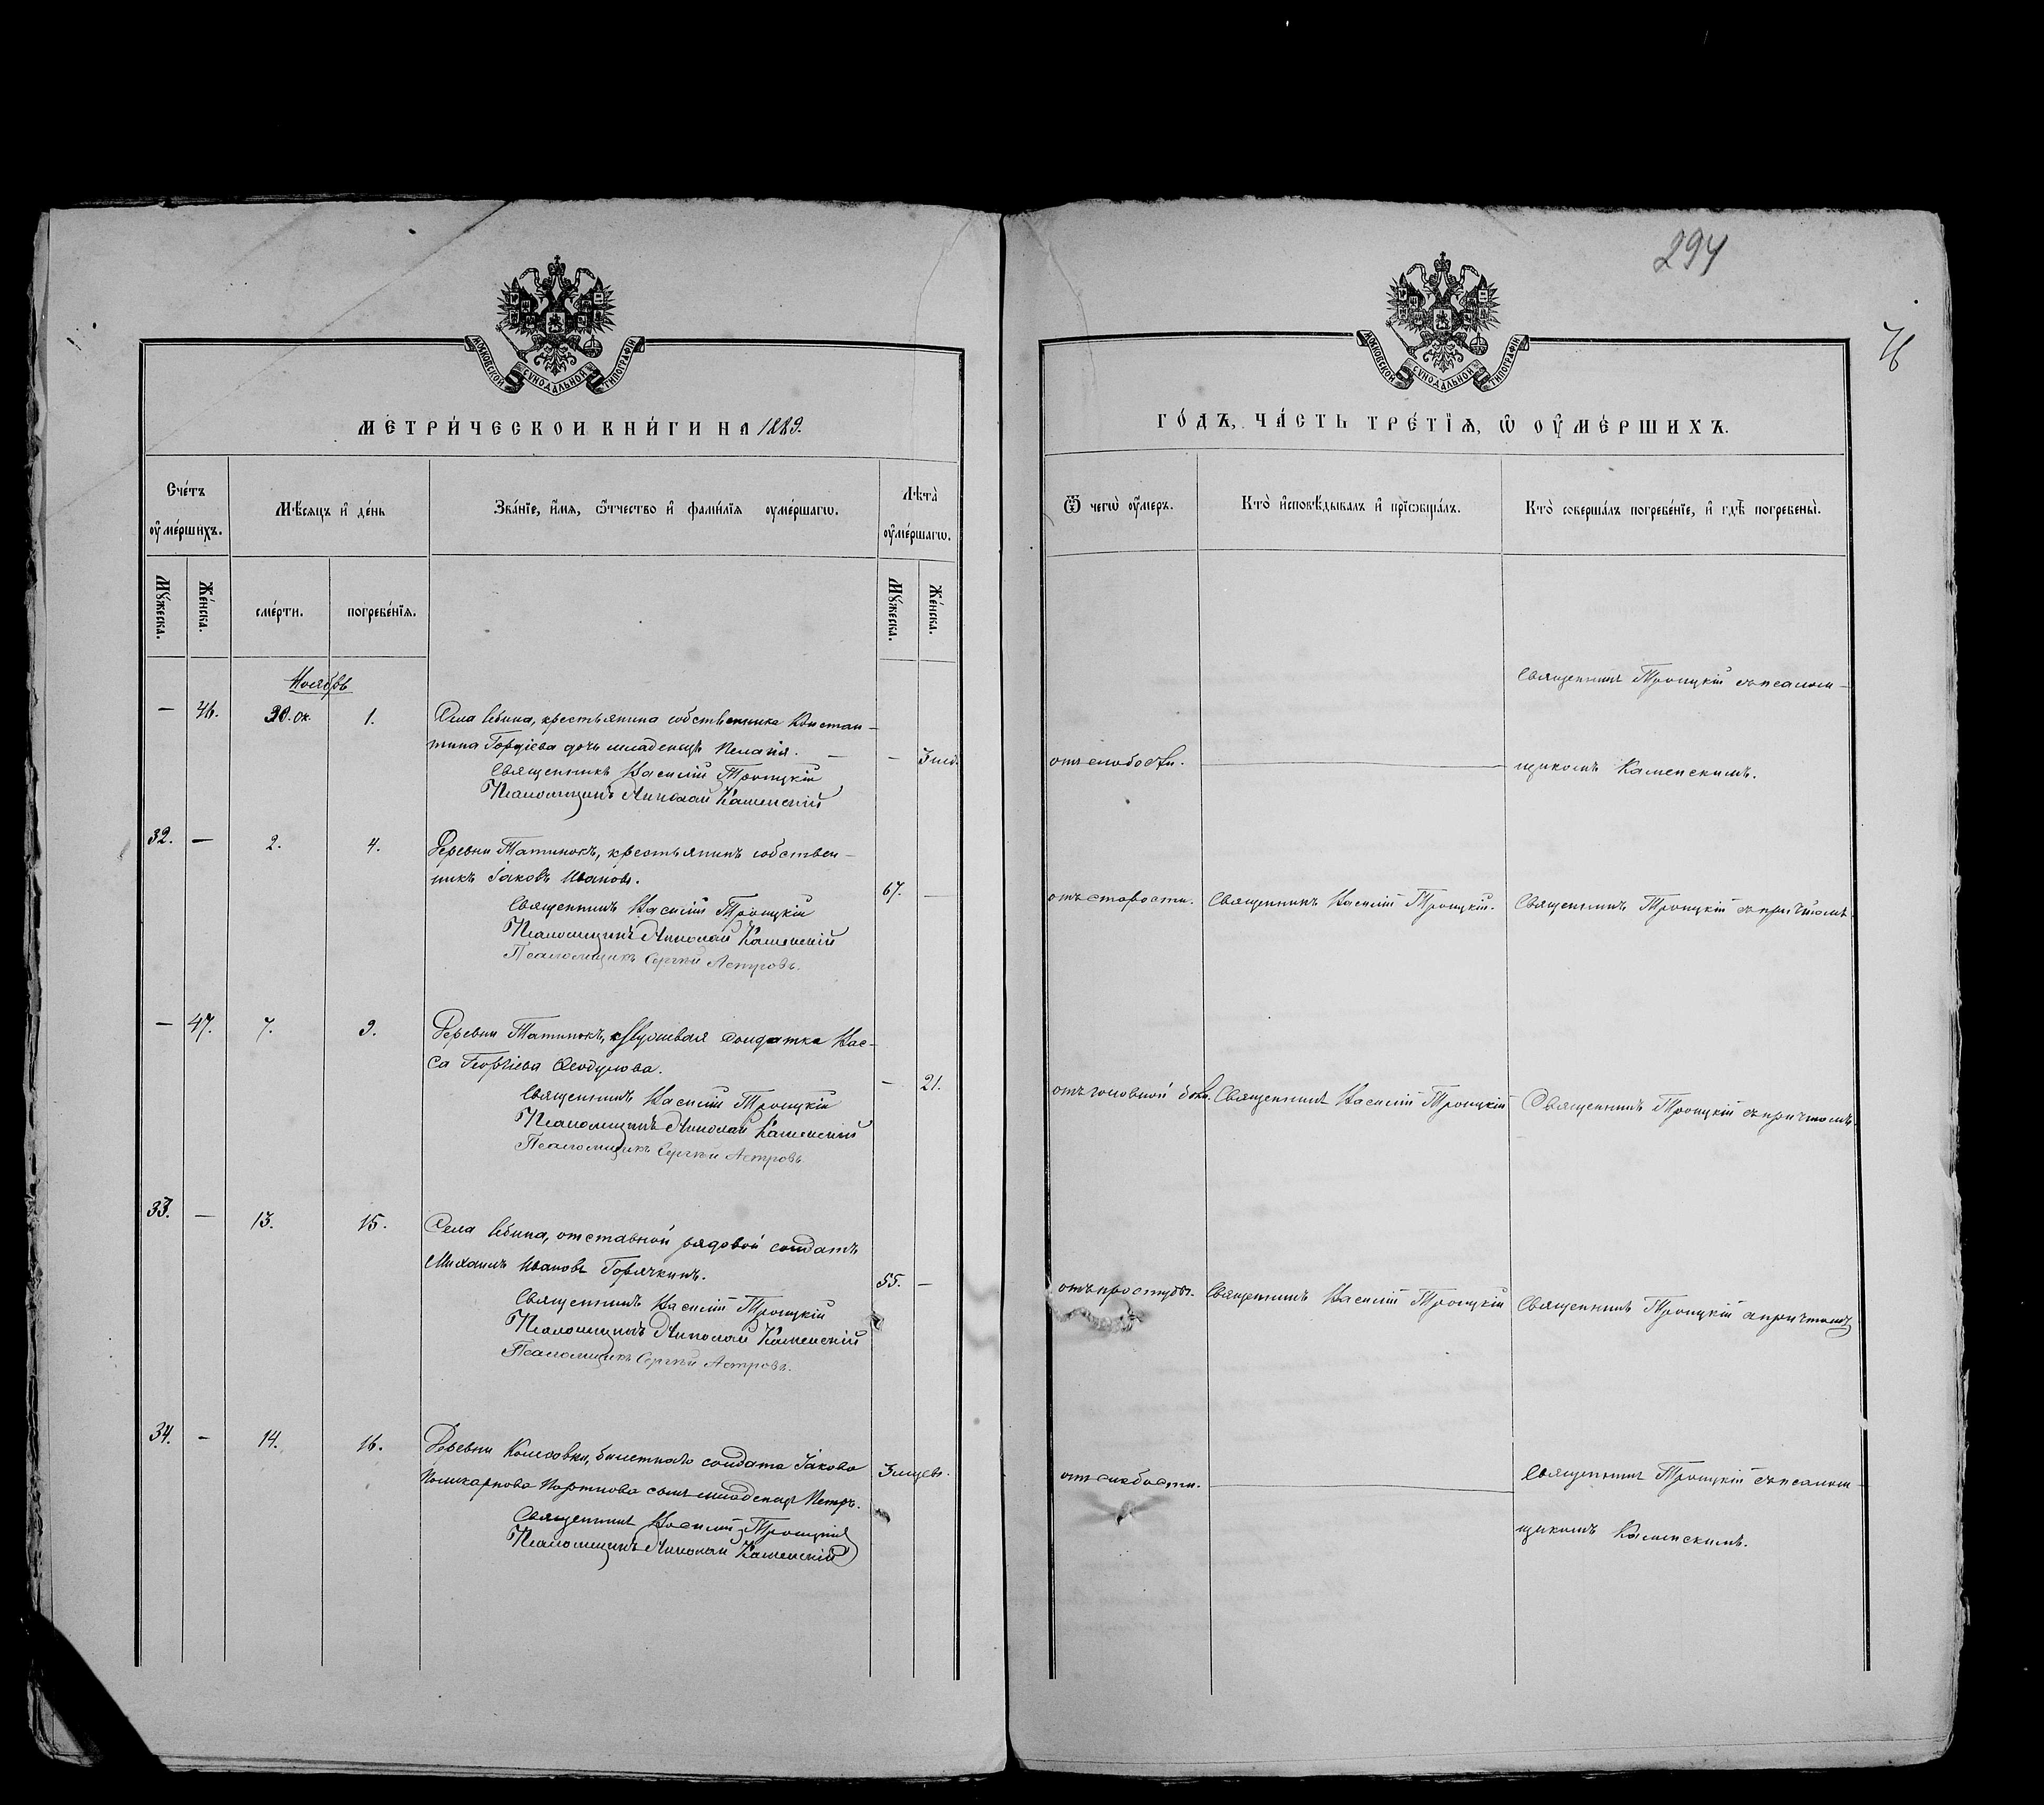 294
76
МОСКОВСКОЙ СѴНОДАЛЬНОЙ ТИПОГРАФІИ
МОСКОВСКОЙ СѴНОДАЛЬНОЙ ТИПОГРАФІИ
МЕТРИ́ЧЕСКОЙ КНИ́ГИ НА 1889.
ГО́ДЪ, ЧА́СТЬ ТРЕ́ТІѦ, Ѡ ОУ҆МЕ́РШИХЪ.
Сче́тъ оу҆ме́ршихъ.
Мѣ́сяцъ и҆ де́нь
Зва́нїе, и҆́мя, ѻ҆́тчество и҆ фами́лїя оуме́ршагѡ.
Лѣта̀ оу҆ме́ршагѡ.
Ѿ чегѡ̀ оу҆́меръ.
Кто̀ и҆сповѣ́дывалъ и҆ прїѡбща́лъ.
Кто̀ соверша́лъ погребе́нїе, и҆ гдѣ̀ погребены̀.
Мꙋ́жеска.
Же́нска.
сме́рти.
погребе́нїя.
Мꙋ́жеска.
Же́нска.
Ноябрь
— 46. 30. ок. 1. Села Себина, крестьянина собственника Констан-
тина Гордіева дочь младенецъ Пелагія. — — 3 нед.
Священникъ Василій Троицкій
Псаломщикъ Николай Каменскій
отъ слабости.
Священникъ Троицкій съ псалом-
щикомъ Каменскимъ.
32. — 2. 4. Деревни Татинокъ, крестьянинъ собствен-
никъ Іаковъ Ивановъ. 67. —
Священникъ Василій Троицкій
Псаломщикъ Николай Каменскій
Псаломщикъ Сергѣй Астровъ.
отъ старости. Священникъ Василій Троицкій. Священникъ Троицкій съ причтомъ.
— 47. 7. 9. Деревни Татинокъ, солдатка Вас-
са Георгіева — 21.
Священникъ Василій Троицкій
Псаломщикъ Николай Каменскій
Псаломщикъ Сергѣй Астровъ.
отъ головной боли. Священникъ Василій Троицкій Священникъ Троицкій съ причтомъ.
33. — 13. 15. Села Себина, отставной рядовой солдатъ
Михаилъ Ивановъ Горячкинъ. 55. —
Священникъ Василій Троицкій
Псаломщикъ Николай Каменскій
Псаломщикъ Сергѣй Астровъ.
отъ простуды. Священникъ Василій Троицкій Священникъ Троицкій съ причтомъ
34. — 14. 16. Деревни билетнаго солдата Іакова
Поликарпова Портнова сынъ младенецъ Петръ. 3 мѣсяц.
Священникъ Василій Троицкій
Псаломщикъ Николай Каменскій
отъ слабости.
Священникъ Троицкій съ псалом-
щикомъ Каменскимъ.